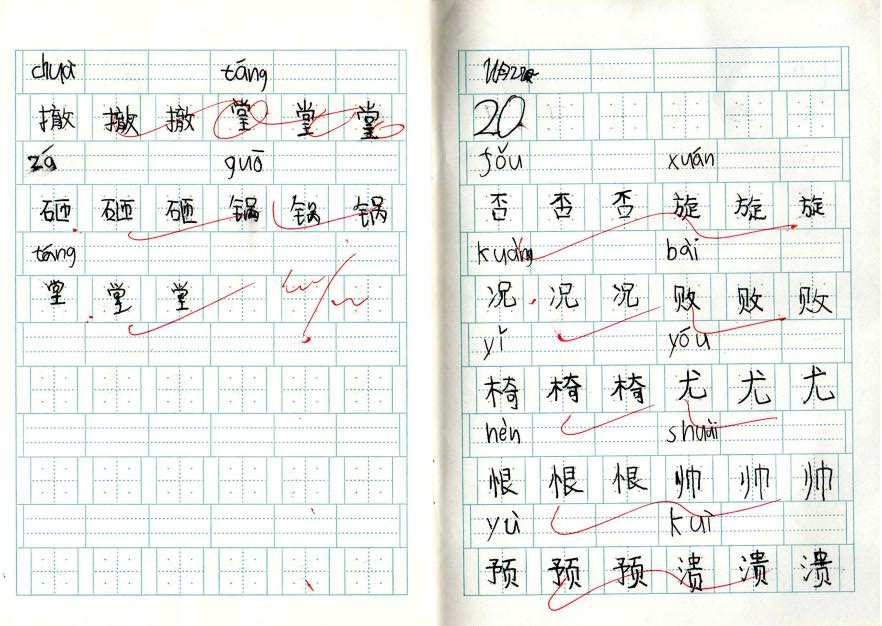 táng
撤 撤 撤 堂 堂 堂
zá guō
砸 砸 砸 锅 锅 锅
táng
堂 堂 堂
20
fǒu xuán
否 否 否 旋 旋 旋
kuàng bài
况 况 况 败 败 败
yǐ yóu
椅 椅 椅 尤 尤 尤
hèn shuài
恨 恨 恨 帅 帅 帅
yù kuì
预 预 预 溃 溃 溃